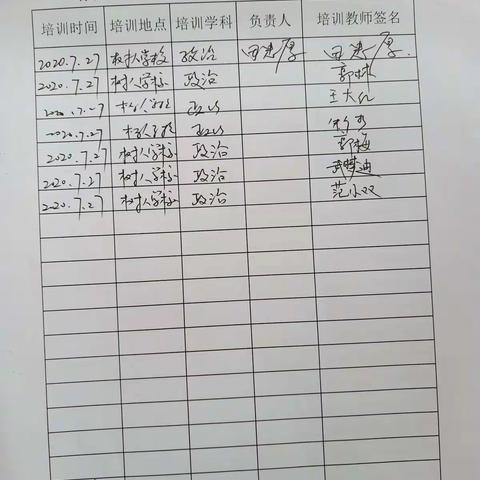 培训时间 培训地点 培训学科 负责人 培训教师签名
2020.7.27 树人学校 政治 田进厚 田进厚
2020.7.27 树人学校 政治 郭林
2020.7.27 树人学校 政治 王大
2020.7.27 树人学校 政治
2020.7.27 树人学校 政治 郭梅
2020.7.27 树人学校 政治 武梦迪
2020.7.27 树人学校 政治 范小双